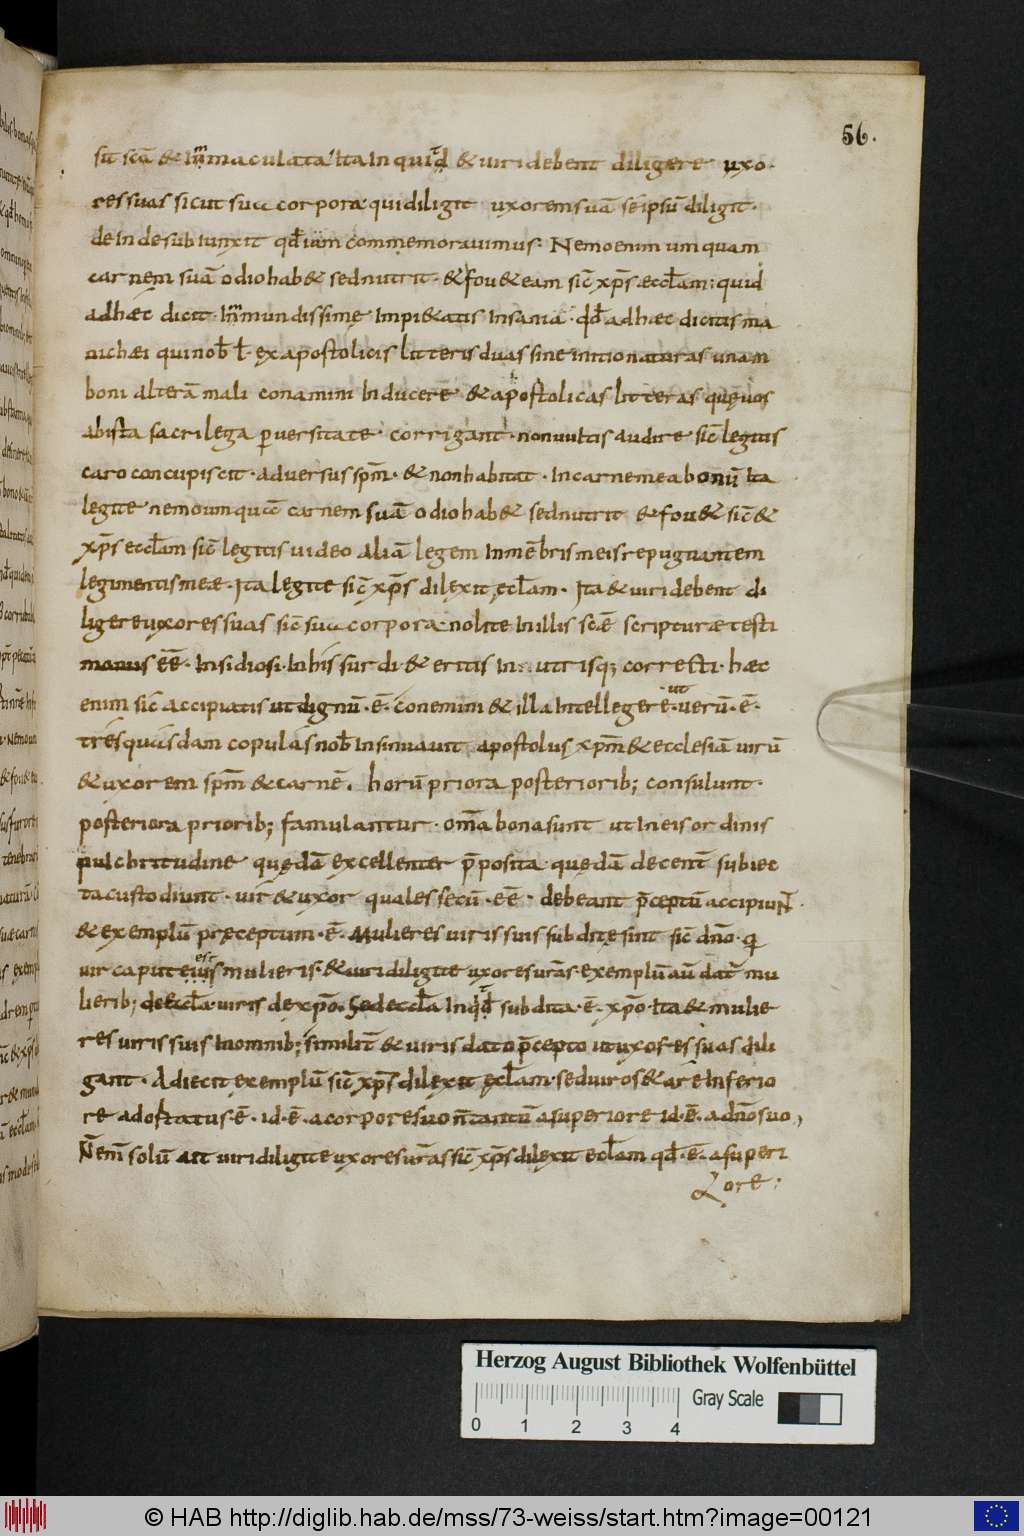 56.
sit scā & inmaculata. Ita inquid & uiri debent diligere uxo
res suas sicut sua corpora qui diligit uxorem suā se ipsū diligit.
deinde subiunxit qđ iam commemorauimus. Nemo enim umquam
carnem suā odio hab& sed nutrit. & fou& eam sic̄ xp̄s æccl̄am: quid
adhæc dicit. Inmundissime impi&atis insania. qđ adhæc dicitis ma
nichæi qui nob̄ ł. ex apostolicis litteris duas sine initio naturas unam
boni alterā mali conamini inducere & apostolicas litteras quę uos
ab ista sacrilega puersitate corrigant. non uultis audire sic̄ legitis
caro concupiscit. aduersus spm̄. & non habitat. In carne mea bonū Ita
legite nemo umquā carnem suā odio hab& sed nutrit & fou& sic̄ &
xp̄s eccl̄am sic̄ legitis uideo aliā legem in mēbris meis repugnantem
legi mentis meæ. Ita legite sic̄ xp̄s dilexit ęcl̄am. Ita & uiri debent di
ligere uxores suas sic̄ sua corpora nolite in illis scē scripturæ testi
moniis eē. Insidiosi. In his surdi. & eritis in utrisq; correcti. hæc
enim sic̄ accipiatis ut dignū. ē. conemini & illa intellegere. ut uerū. ē.
tres quasdam copulas nob̄ insinuauit apostolus xpm̄ & ecclesiā uirū
& uxorem spm̄ & carnē. horū priora posteriorib; consulunt.
posteriora priorib; famulantur. om̄a bona sunt ut in eis ordinis
pulchritudine quędā excellenter p̄posita quędā decent̄ subiec
ta custodiunt. uir & uxor quales secū. eē. debeant p̄ceptū accipiunt̄.
& exemplū pręceptum. ē. Mulieres uiris suis subditę sint sic̄ dn̄o. q
uir caput est mulieris. & uiri diligite uxores ur̄as. exemplū aū dat̄ mu
lierib; de eccl̄a. uiris de xp̄o. Sed eccl̄a inqđ subdita. ē. xp̄o. Ita & mulie
res uiris suis in omnib; similit̄ & uiris dato p̄cepto ut uxores suas dili
gant. Adiecit exemplū sic̄ xp̄s dilexit ęcl̄am. sed uiros & a re inferio
re adostatus ē. id. ē. a corpore suo n̄ tantū a superiore id. ē. a dn̄o suo,
N̄ enim̄ solū ait uiri diligite uxores ur̄as sic̄ xp̄s dilexit eccl̄am qđ. ē. a superi
ore:
Herzog August Bibliothek Wolfenbüttel
Gray Scale
0 1 2 3 4
© HAB http://diglib.hab.de/mss/73-weiss/start.htm?image=00121